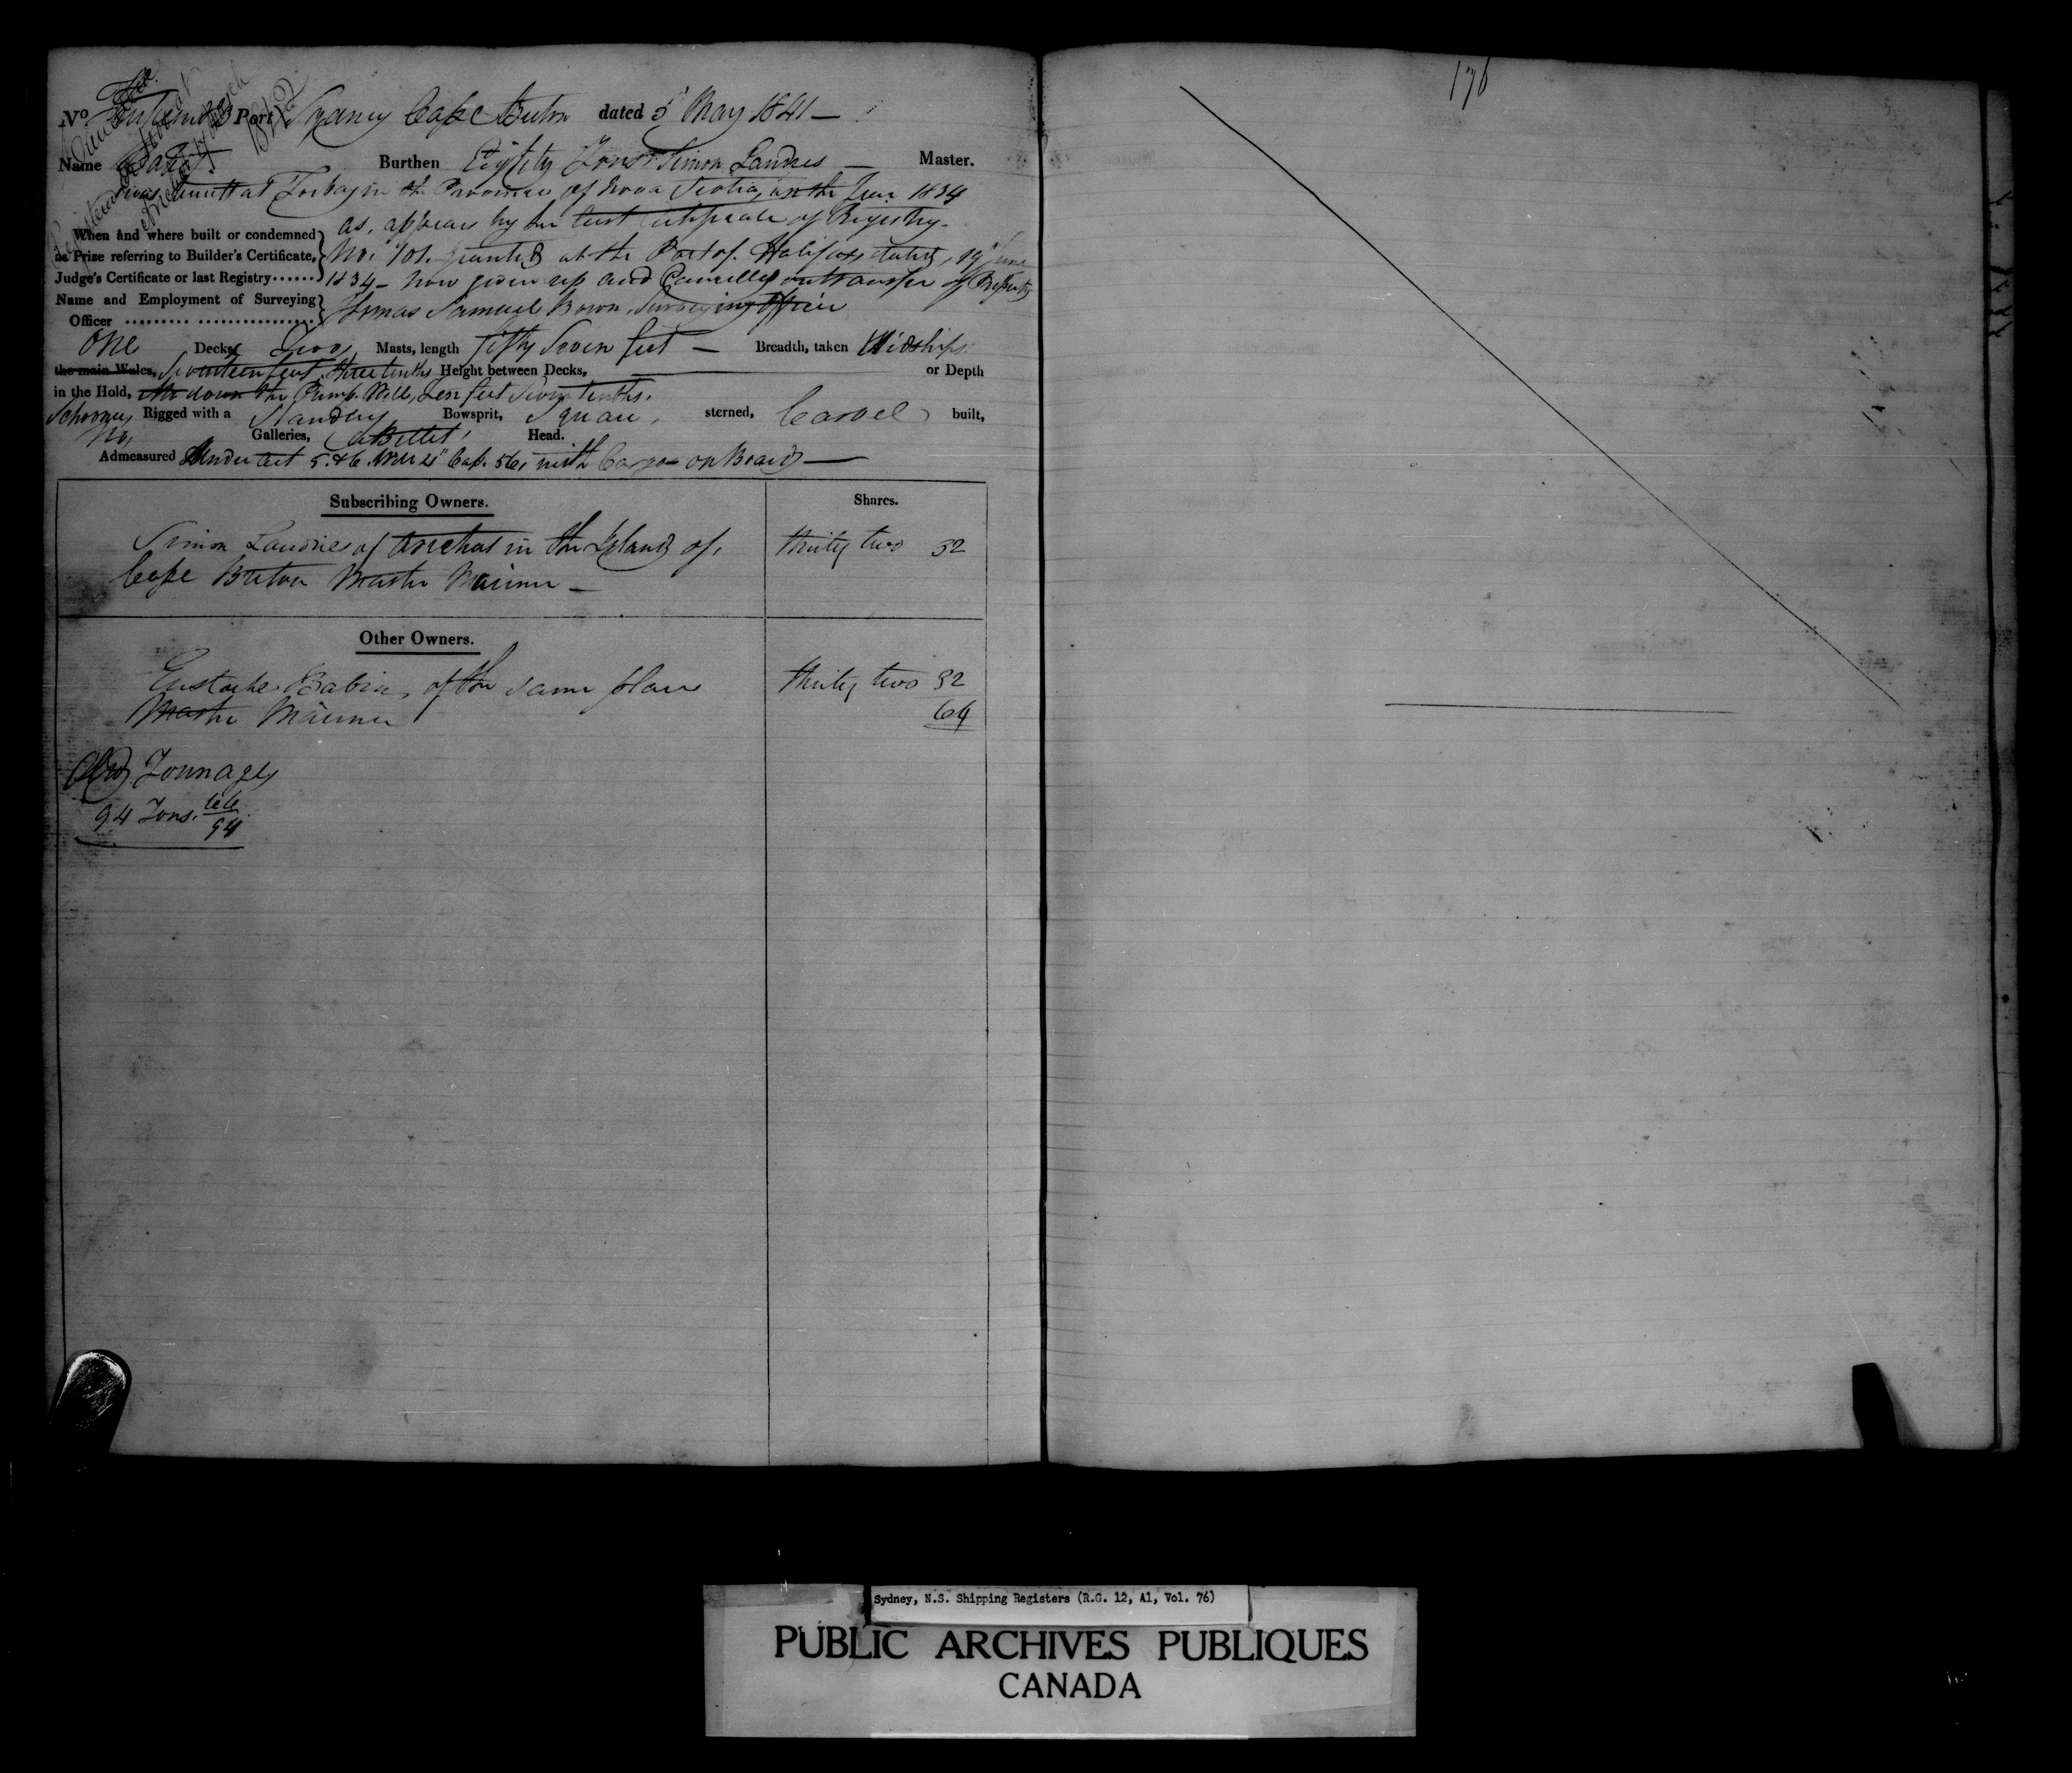 176
No. Port Sydney Cape Breton dated 5 May 1841 —
Name Burthen Eighty Tons Simon Landries — Master.
was built at Torbay in the Province of Nova Scotia, in the Year 1834
as appears by her last Certificate of Registry.
When and where built or condemned
as Prize referring to Builder's Certificate, No. 101. granted at the Port of Halifax dated, 19 June
Judge's Certificate or last Registry...... 1834 – now given up and Cancelled on transfer of Property
Name and Employment of Surveying
Officer Thomas Samuel Bown, Surveying Officer
One Decks Two Masts, length fifty Seven feet — Breadth, taken Midships
the main Wales, Seventeen feet three tenths Height between Decks, or Depth
in the Hold, the Pump Well, Ten feet Seven tenths.
Schooner Rigged with a Standing Bowsprit, Square sterned, Carvel built,
No Galleries, a Billet Head.
Admeasured Under Act 5. & 6. Will 4" Cap. 56, with Cargo on Board —
Subscribing Owners. Shares.
Simon Landries of Arichat in the Island of thirty two 32
Cape Breton Master Mariner —
Other Owners.
Eustache Babin, of the same place thirty two 32
Master Mariner 64
Old Tonnage
94 Tons. 66/94
Sydney, N.S. Shipping Registers (R.G. 12, A1, Vol. 76)
PUBLIC ARCHIVES PUBLIQUES
CANADA